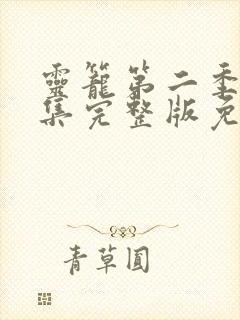 靈籠第二季
集完整版免
青草圓